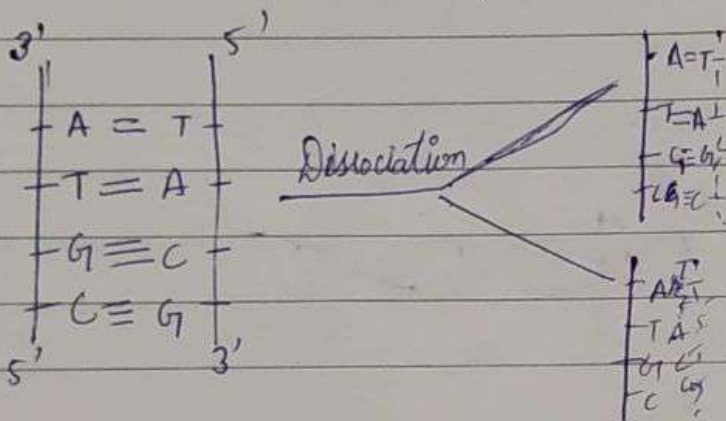 3' 5'
A = T
T = A
G ≡ C
C ≡ G
5' 3'
Dissociation
A = T
T = A
G ≡ C
A
T A
G
C